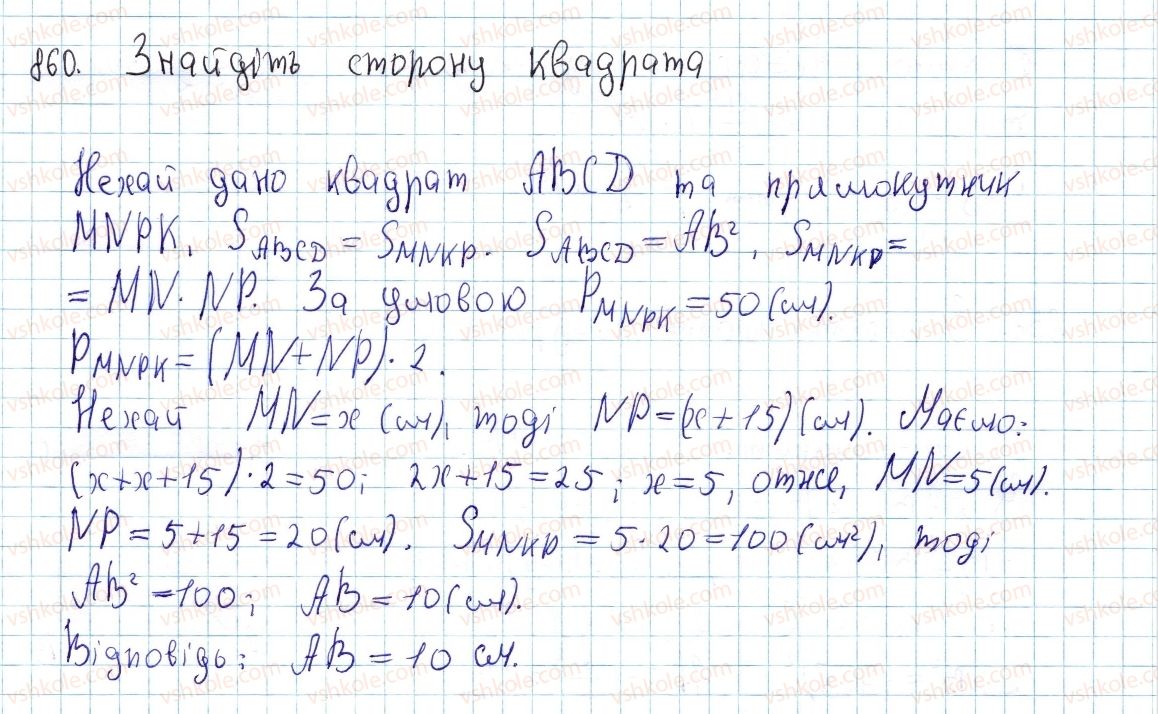 860. Знайдіть сторону квадрата
Нехай дано квадрат ABCD та прямокутник
MNPK, S_ABCD = S_MNKP. S_ABCD = AB², S_MNKP =
= MN · NP. За умовою P_MNPK = 50 (см).
P_MNPK = (MN + NP) · 2.
Нехай MN = x (см), тоді NP = (x + 15) (см). Маємо:
(x + x + 15) · 2 = 50; 2x + 15 = 25; x = 5, отже, MN = 5 (см).
NP = 5 + 15 = 20 (см). S_MNKP = 5 · 20 = 100 (см²), тоді
AB² = 100; AB = 10 (см).
Відповідь: AB = 10 см.